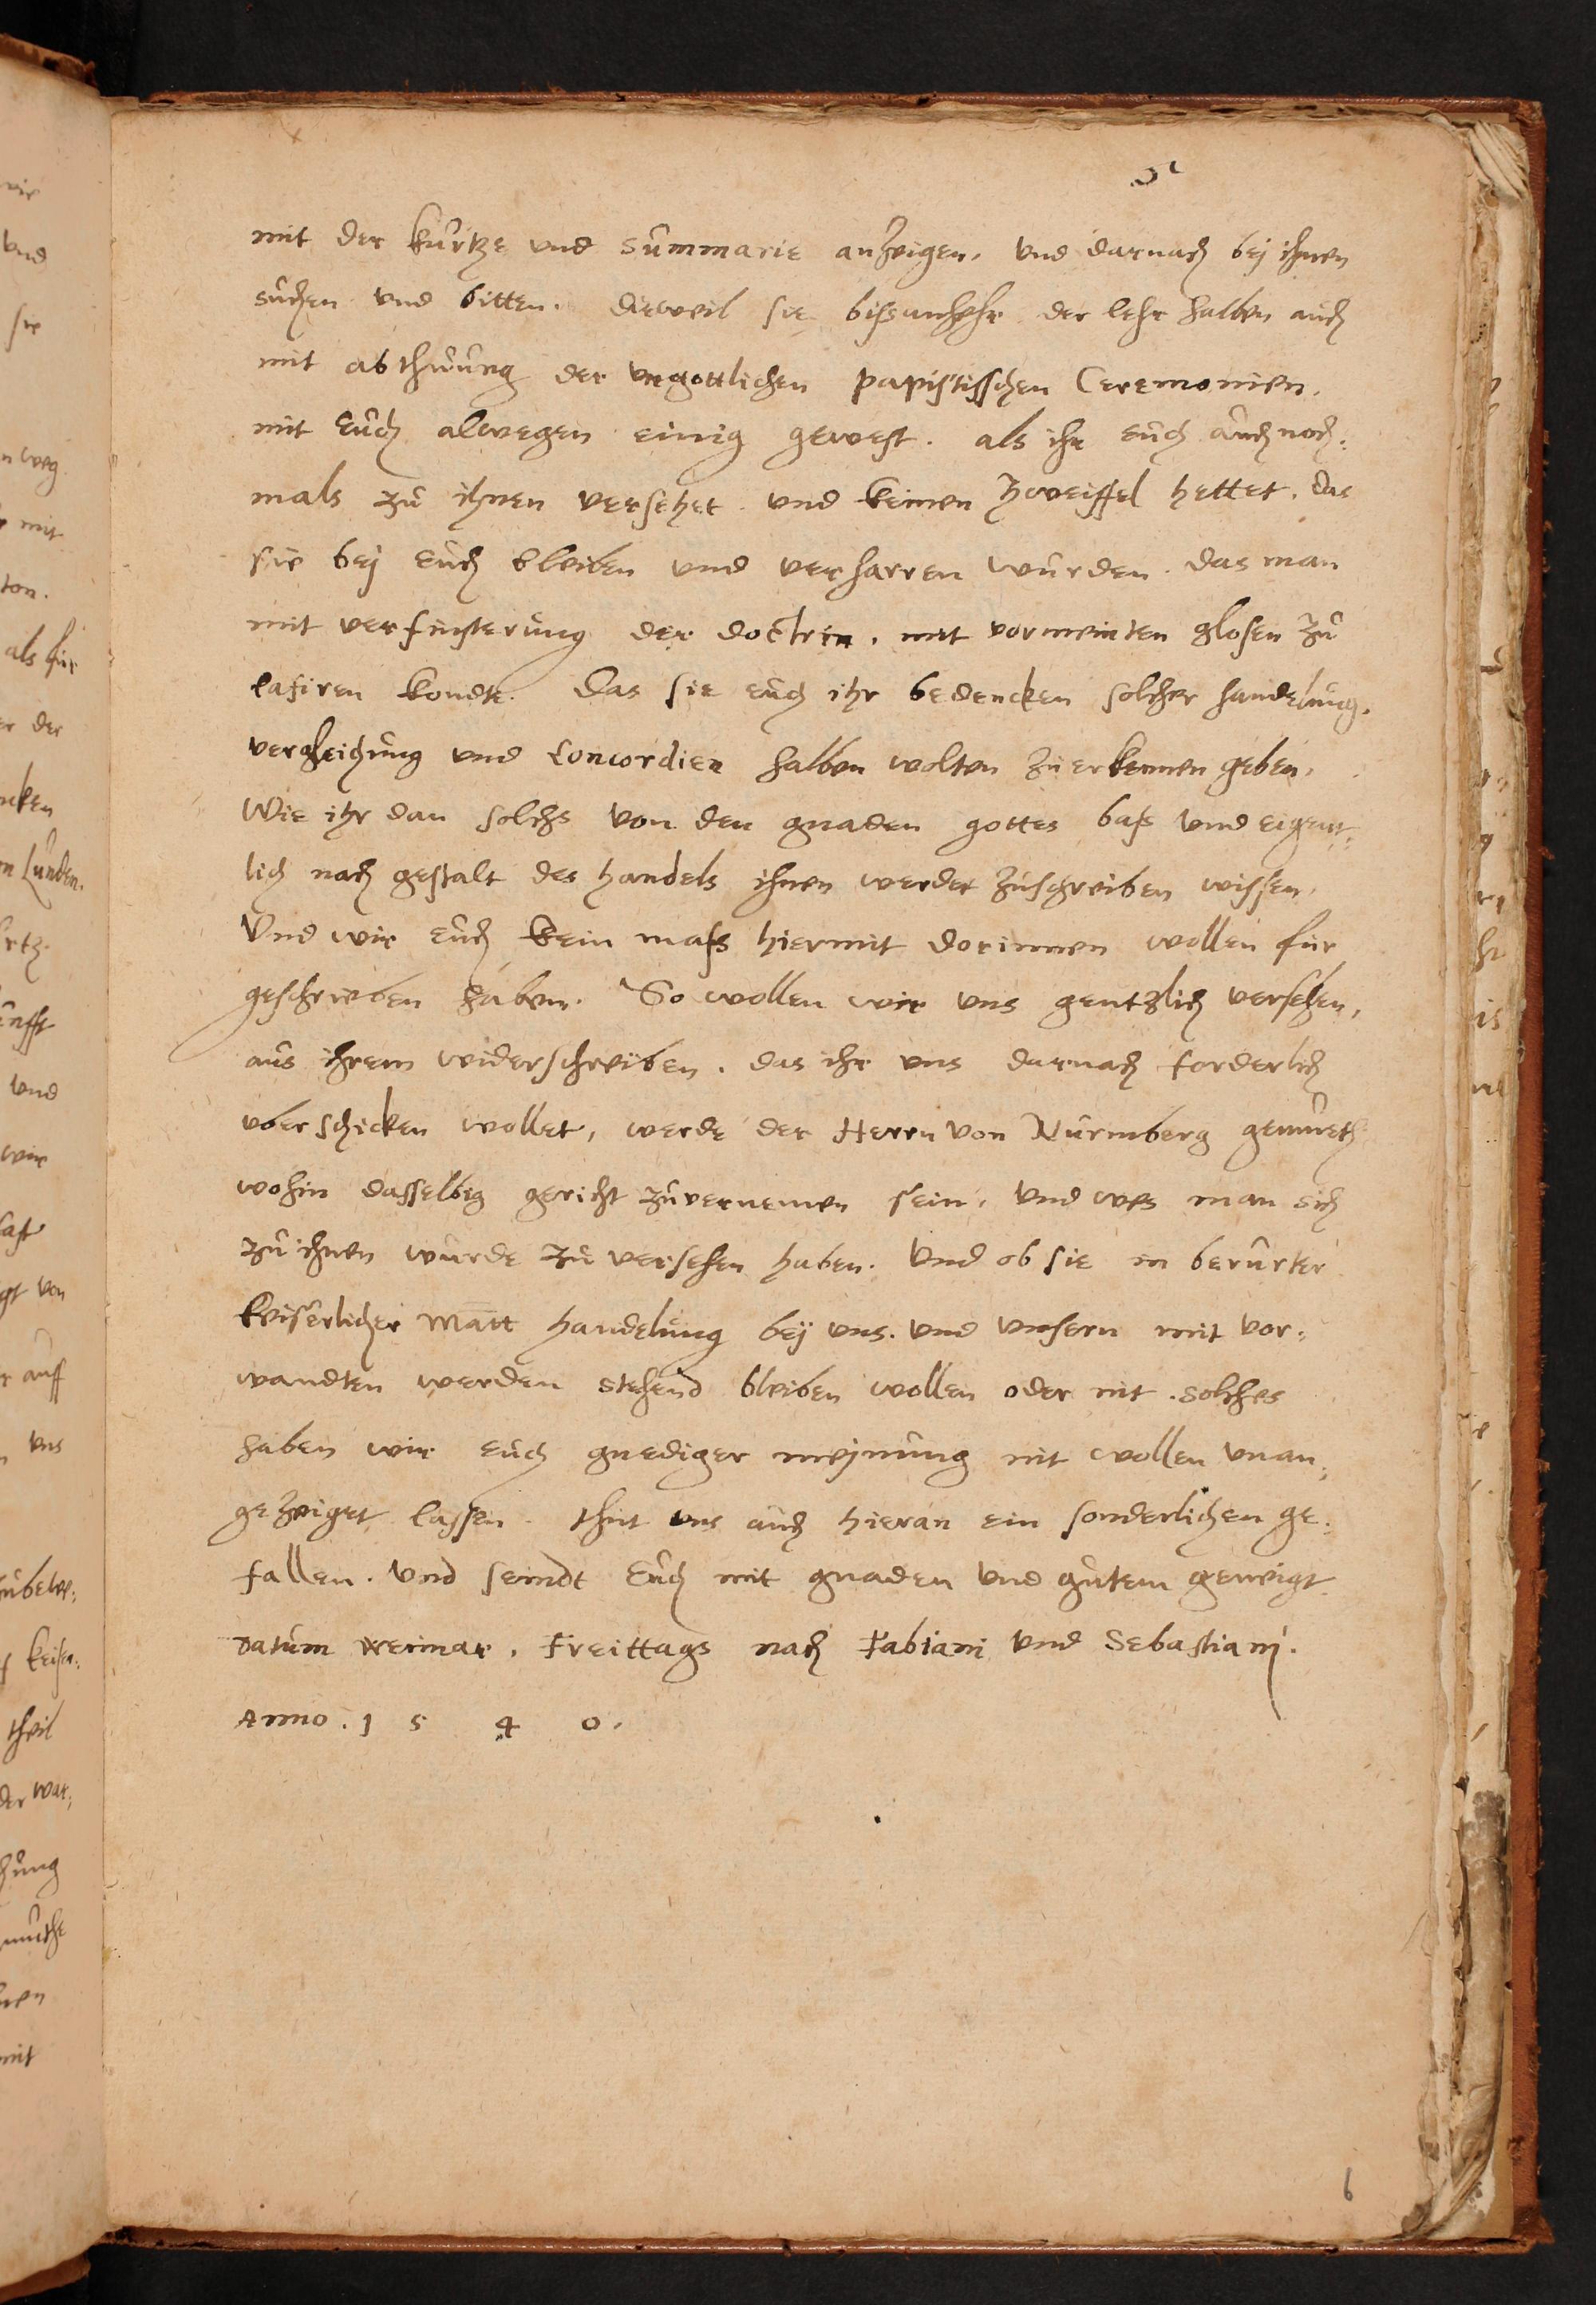 mit der kurtze vnd summarie anzeigen, vnd darnach bej ihnen
suchen vnd bitten. dieweil sie bissanhehr der lehr halben auch
mit abthuung der vngottlichen papistisschen Ceremonien.
mit Euch alwegen einig gewest. als ihr euch auch noch:
mals zu ihnen versehet vnd keinen zweiffel hettet. das
sie bej euch bleiben vnd verharren wurden. das man
mit verfinsterung der doctrin. mit vormeinten glosen zu
lasiren kondte. Das sie euch ihr bedencken solcher handelung.
vergleichung vnd Concordien halben wolten zuerkennen geben.
Wie ihr dan solchs von den gnaden gottes bass vnd eigent:
lich nach gestalt des handels ihnen werdet zuschreiben wissen.
Vnd wir euch kein mass hiermit dorinnen wollen fur
geschrieben haben. So wollen wir vns gentzlich versehen,
aus ihrem widerschreiben. das ihr vns darnach forderlich
vberschicken wollet, werde der Herrn von Nurmberg gemueth
wohin dasselbig gericht zuvernemen sein, vnd wes man sich
zu ihnen wurde zu versehen haben. Vnd ob sie in berurter
keiserlicher Matt handelung bej vns. vnd vnsern mit vor:
wandten werden stehend bleiben wollen oder nit. solches
haben wir euch gnediger mejnung nit wollen vnan:
gezeiget lassen. thut vns auch hieran ein sonderlichen ge:
fallen. Vnd seindt Euch mit gnaden vnd gutem geneigt.
Datum Weimar. Freittags nach Fabiani vnd Sebastianj.
Anno. 1 5 4 0.
6